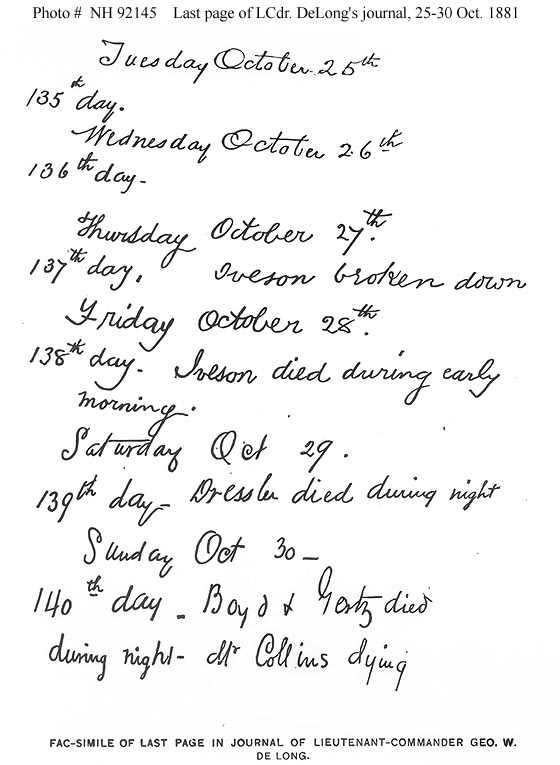 Photo # NH 92145 Last page of LCdr. DeLong's journal, 25-30 Oct. 1881
Tuesday October 25th
135th day.
Wednesday October 26th
136th day-
Thursday October 27th.
137th day, Iveson broken down
Friday October 28th.
138th day- Iveson died during early
morning.
Saturday Oct 29.
139th day- Dressler died during night
Sunday Oct 30-
140th day- Boyd & Gortz died
during night- Mr Collins dying
FAC-SIMILE OF LAST PAGE IN JOURNAL OF LIEUTENANT-COMMANDER GEO. W.
DE LONG.